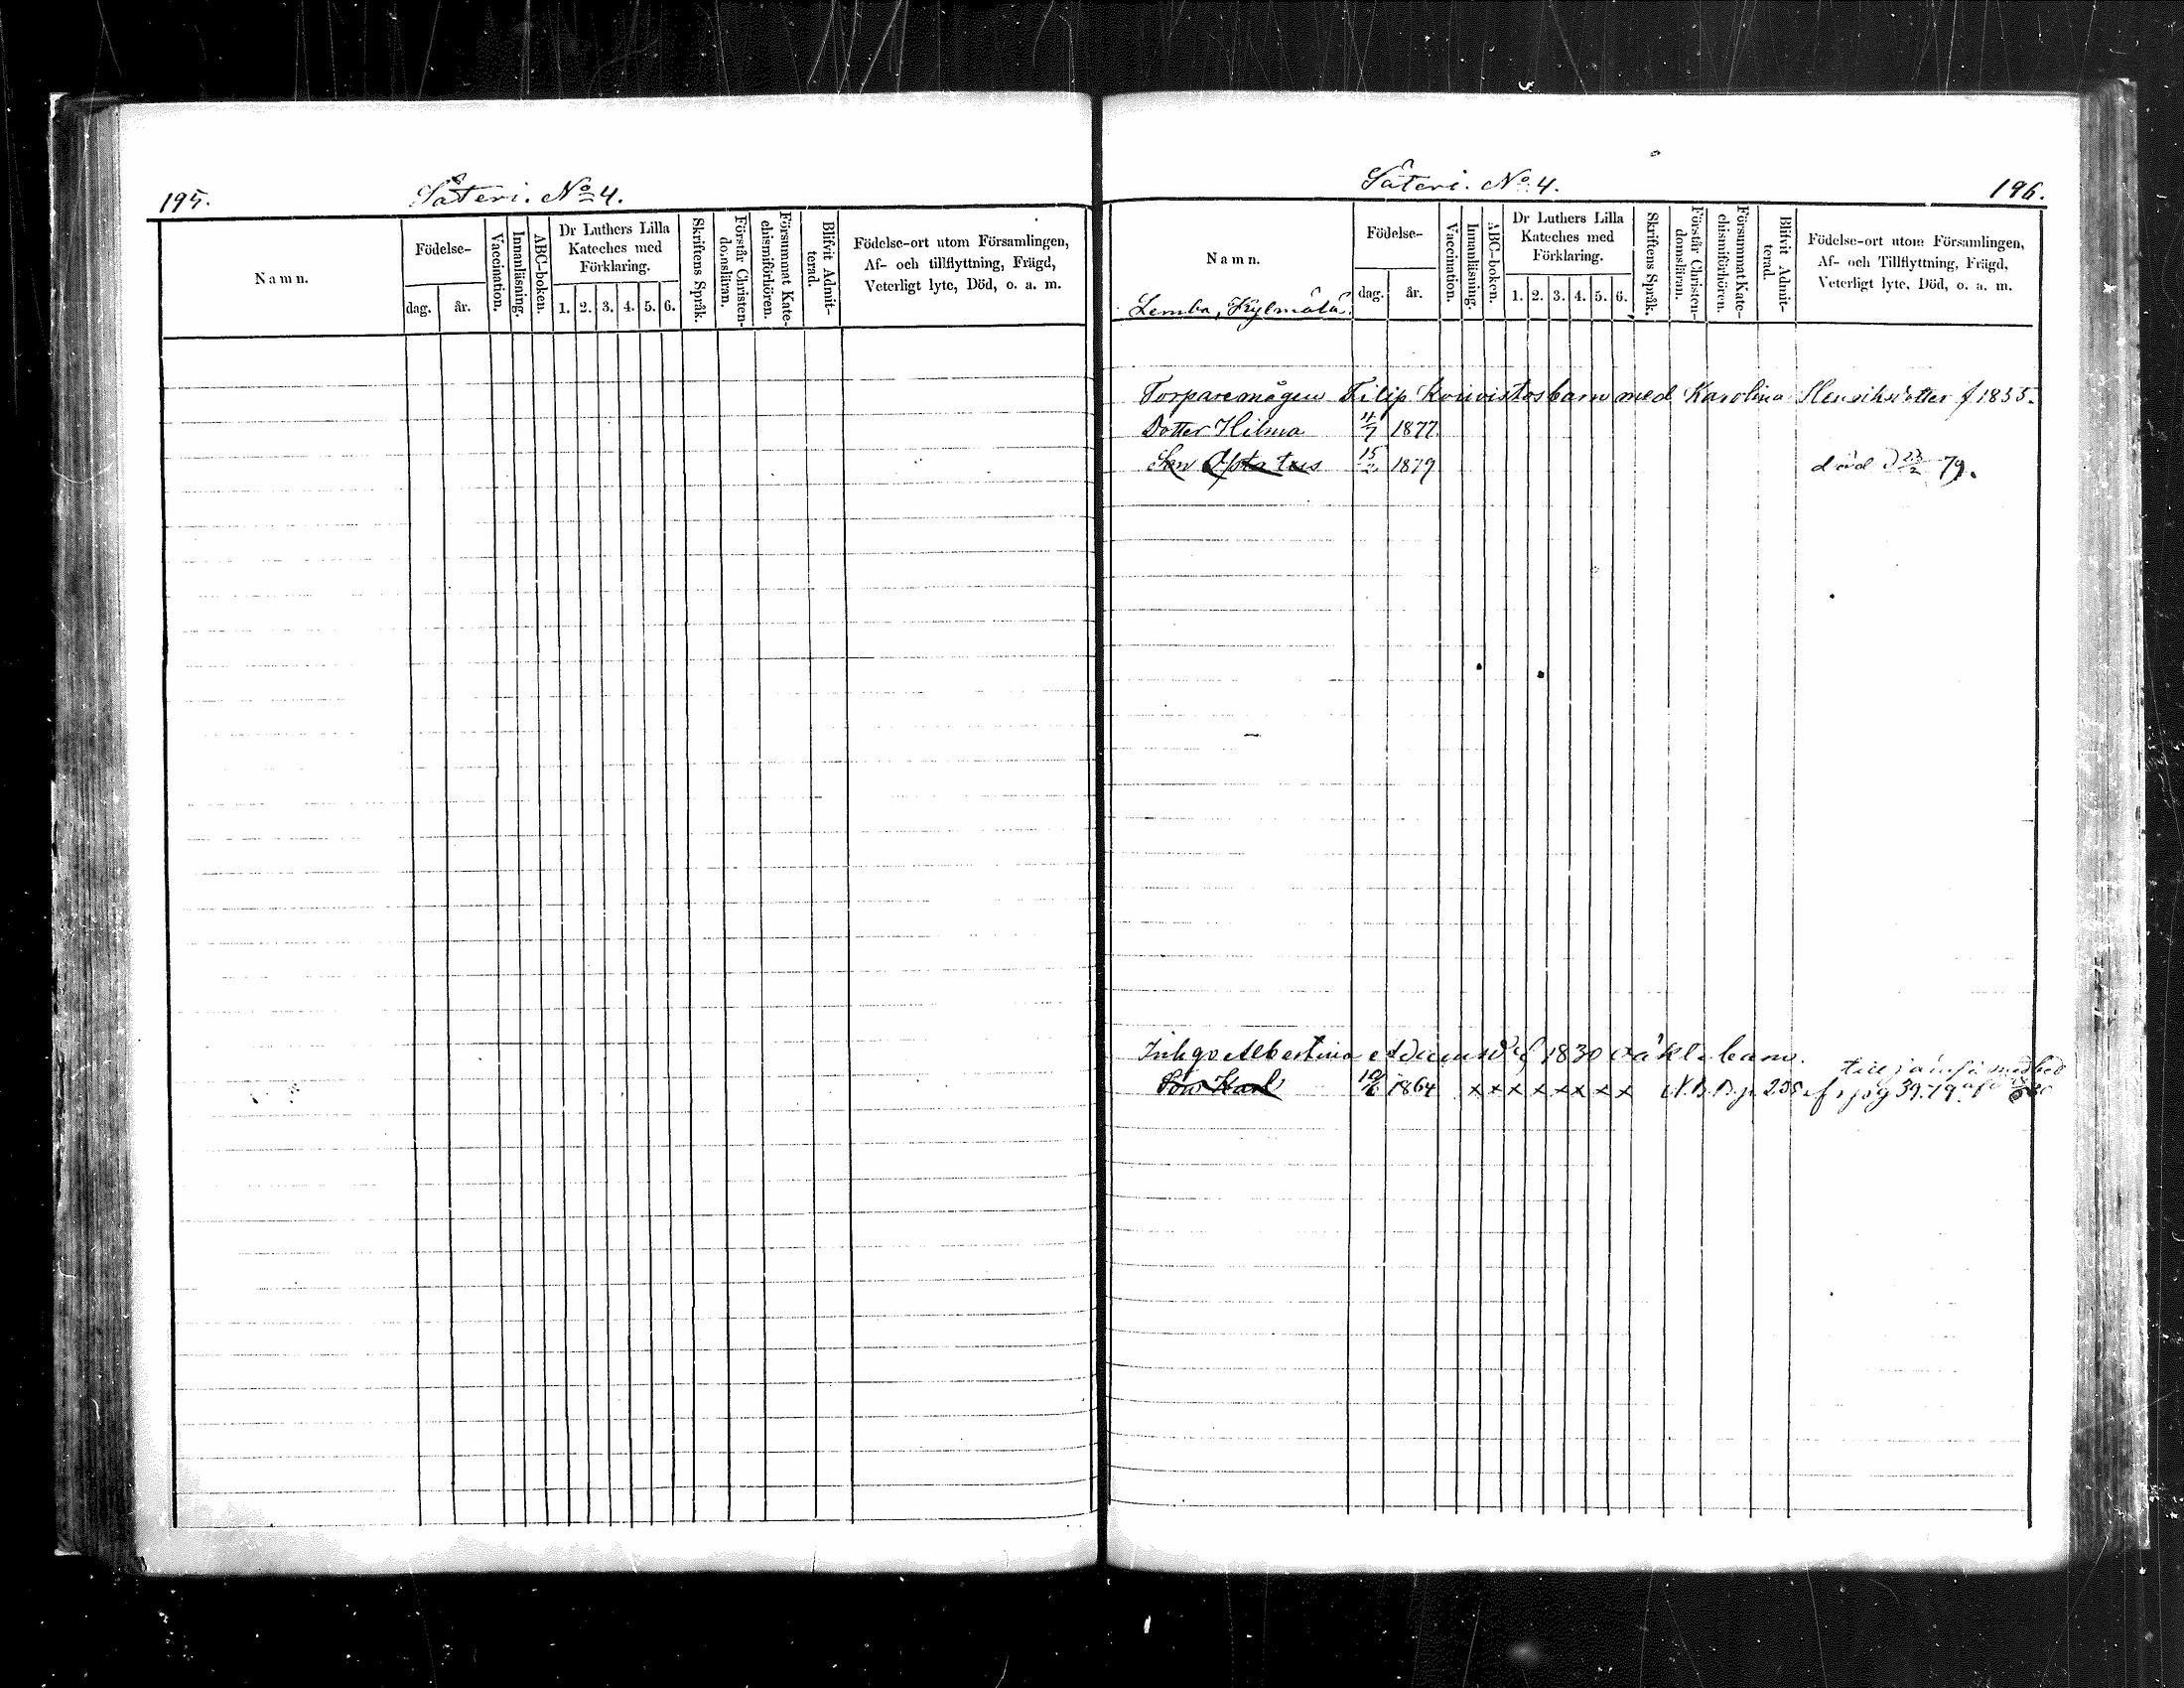 195.
Säteri. No 4.
Namn.
Födelse-
dag.
år.
Vaccination.
Innanläsning.
ABC-boken.
Dr Luthers Lilla
Kateches med
Förklaring.
1. 2. 3. 4. 5. 6.
Skriftens Språk.
Förstår Christen-
domsläran.
Försummat Kate-
chismiförhören.
Blifvit Admit-
terad.
Födelse-ort utom Församlingen,
Af- och tillflyttning, Frägd,
Veterligt lyte, Död, o. a. m.
Säteri. No 4.
196.
Namn.
Lemba, Kylmälä.
Födelse-
dag.
år.
Vaccination.
Innanläsning.
ABC-boken.
Dr Luthers Lilla
Kateches med
Förklaring.
1. 2. 3. 4. 5. 6.
Skriftens Språk.
Förstår Christen-
domsläran.
Försummat Kate-
chismiförhören.
Blifvit Admit-
terad.
Födelse-ort utom Församlingen,
Af- och Tillflyttning, Frägd,
Veterligt lyte, Död, o. a. m.
Torparemågen Filip Koivistos barn med Karolina Henriksdotter f 1855.
Dotter Hilma 11/7 1877
Son Optatus 15/2 1879 död d 23/2 79.
Inhys Albertina Adamsd f 1830 oäkta barn.
Son Karl 1864 x x x x x x x x N.B. p. 235